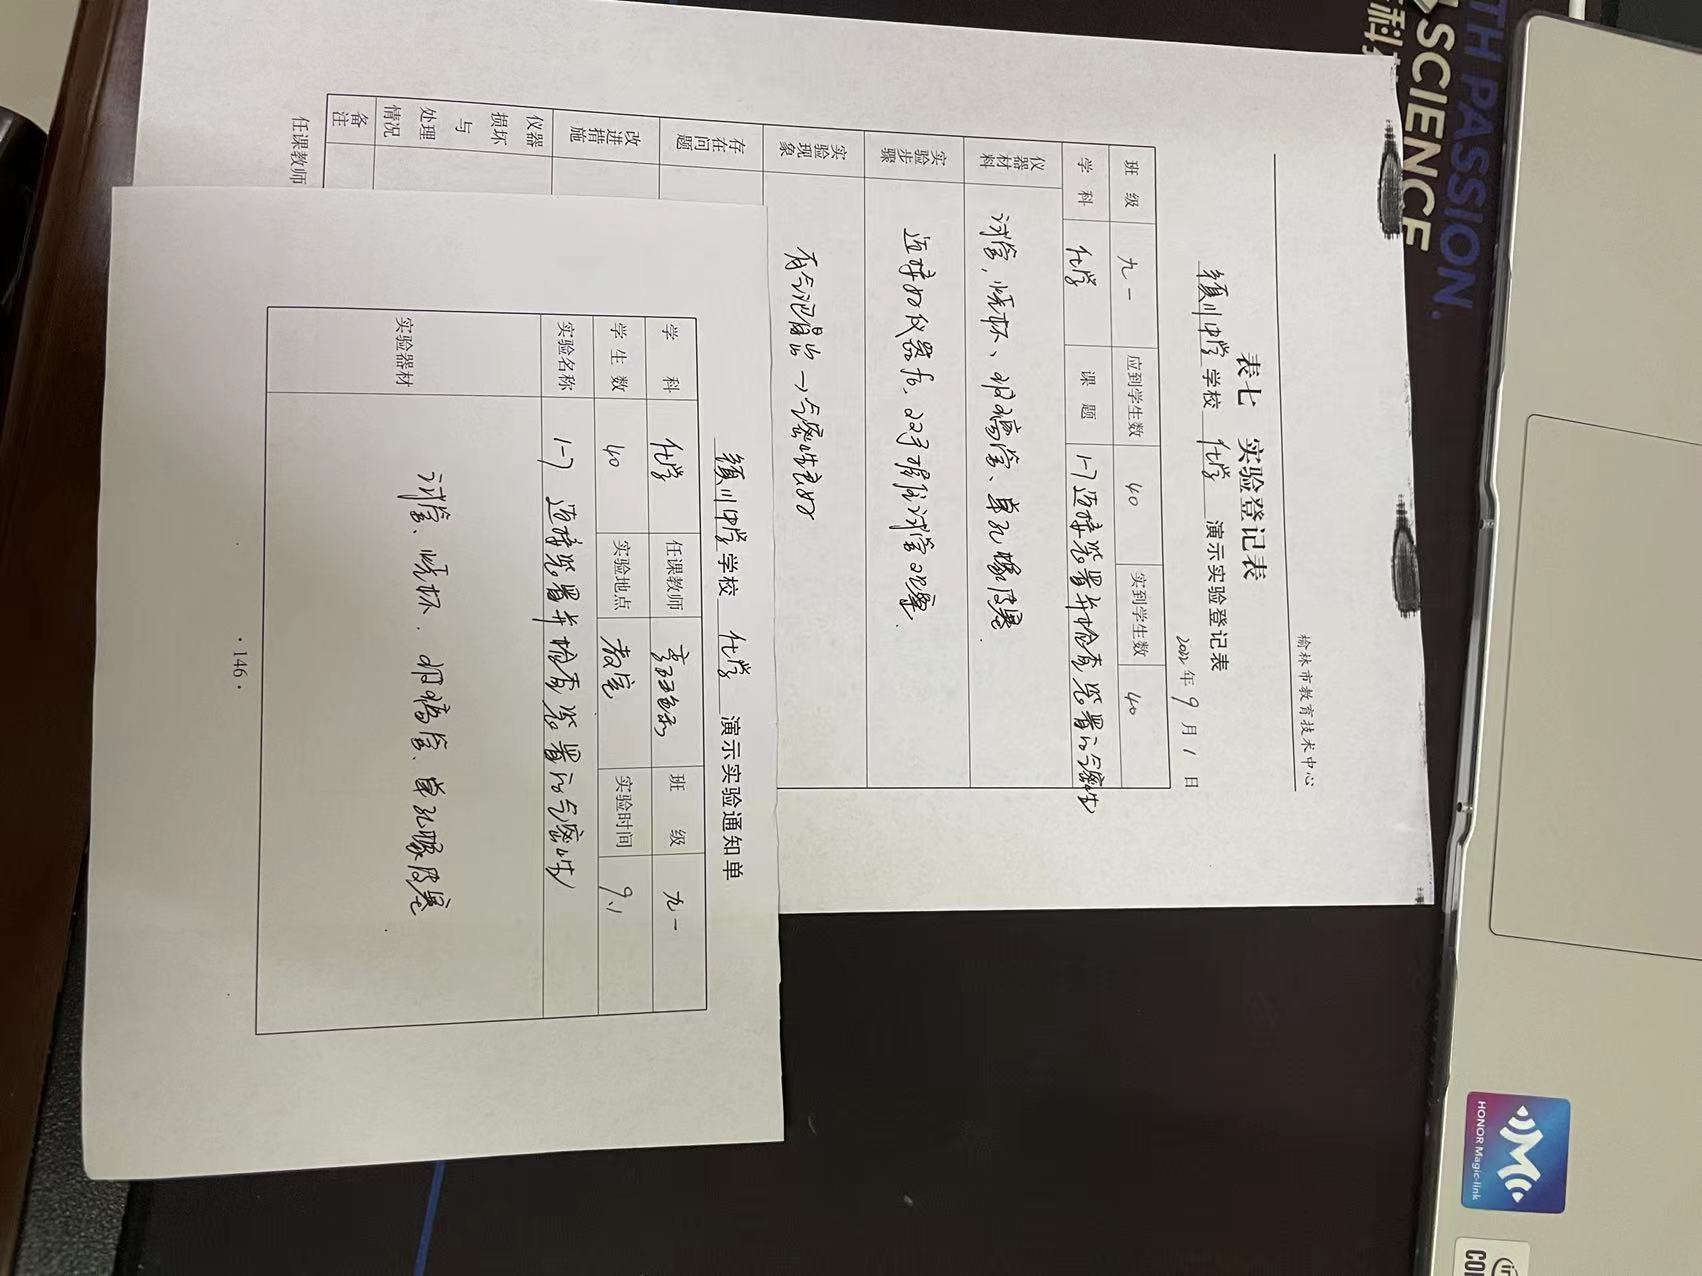 榆林市教育技术中心
表七 实验登记表
中学学校 化学 演示实验登记表
2022年9月1日
班级 九一 应到学生数 40 实到学生数 40
学科 化学 课题 1-7连接装置并检查装置的气密性
仪器材料 试管，烧杯、玻璃管、单孔橡皮塞.
实验步骤 连接好仪器后，双手握住试管观察.
实验现象 有气泡冒出→气密性良好
存在问题
改进措施
仪器损坏与处理情况
备注
任课教师
中学学校 化学 演示实验通知单
学科 化学 任课教师 班级 九一
学生数 40 实验地点 教室 实验时间 9.1
实验名称 1-7 连接装置并检查装置的气密性
实验器材 试管、烧杯、玻璃管、单孔橡皮塞
·146·
TH PASSION.
SCIENCE
科
HONOR Magic-link